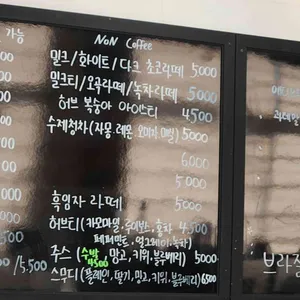 가능
NoN Coffee
밀크/화이트/다크 초코라떼 5000
밀크티/오곡라떼/녹차라떼 5000
허브 복숭아 아이스티 4500
수제청차(자몽.레몬.오미자.매실) 5000
6000
5000
흑임자 라떼 5000
허브티(카모마일,루이보스,홍차 4,500
페퍼민트, 얼그레이,녹차)
주스(수박 4500,망고,키위,블루베리) 5000
스무디(플레인,딸기,망고,키위,블루베리) 6500
/5,500
브라질